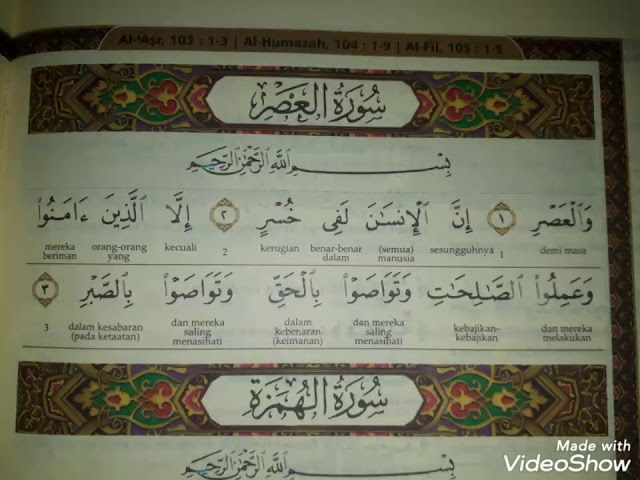 Al-'Aṣr, 103 : 1-3 | Al-Humazah, 104 : 1-9 | Al-Fīl, 105 : 1-5
سُورَةُ الْعَصْرِ
بِسْمِ اللَّهِ الرَّحْمَٰنِ الرَّحِيمِ
وَالْعَصْرِ ۝١ إِنَّ الْإِنْسَانَ لَفِي خُسْرٍ ۝٢ إِلَّا الَّذِينَ ءَامَنُوا
demi masa 1 sesungguhnya (semua) manusia benar-benar dalam kerugian 2 kecuali orang-orang yang mereka beriman
وَعَمِلُوا الصَّالِحَاتِ وَتَوَاصَوْا بِالْحَقِّ وَتَوَاصَوْا بِالصَّبْرِ ۝٣
dan mereka melakukan kebajikan-kebajikan dan mereka saling menasihati dalam kebenaran (keimanan) dan mereka saling menasihati dalam kesabaran (pada ketaatan) 3
سُورَةُ الْهُمَزَةِ
بِسْمِ اللَّهِ الرَّحْمَٰنِ الرَّحِيمِ
Made with
VideoShow